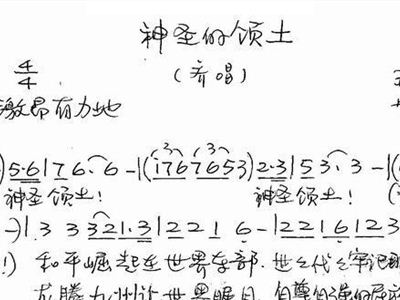 神圣的领土
4/4
(齐唱)
激昂有力地
)5·6|76·6-|(i767653)2·3|153·3-|(
神圣领土! 神圣领土!
-)|33321·3|2216-|2216123
!)和平崛起在世界东部.世世代代牢记
龙腾九州让世界瞩目.自尊自强的